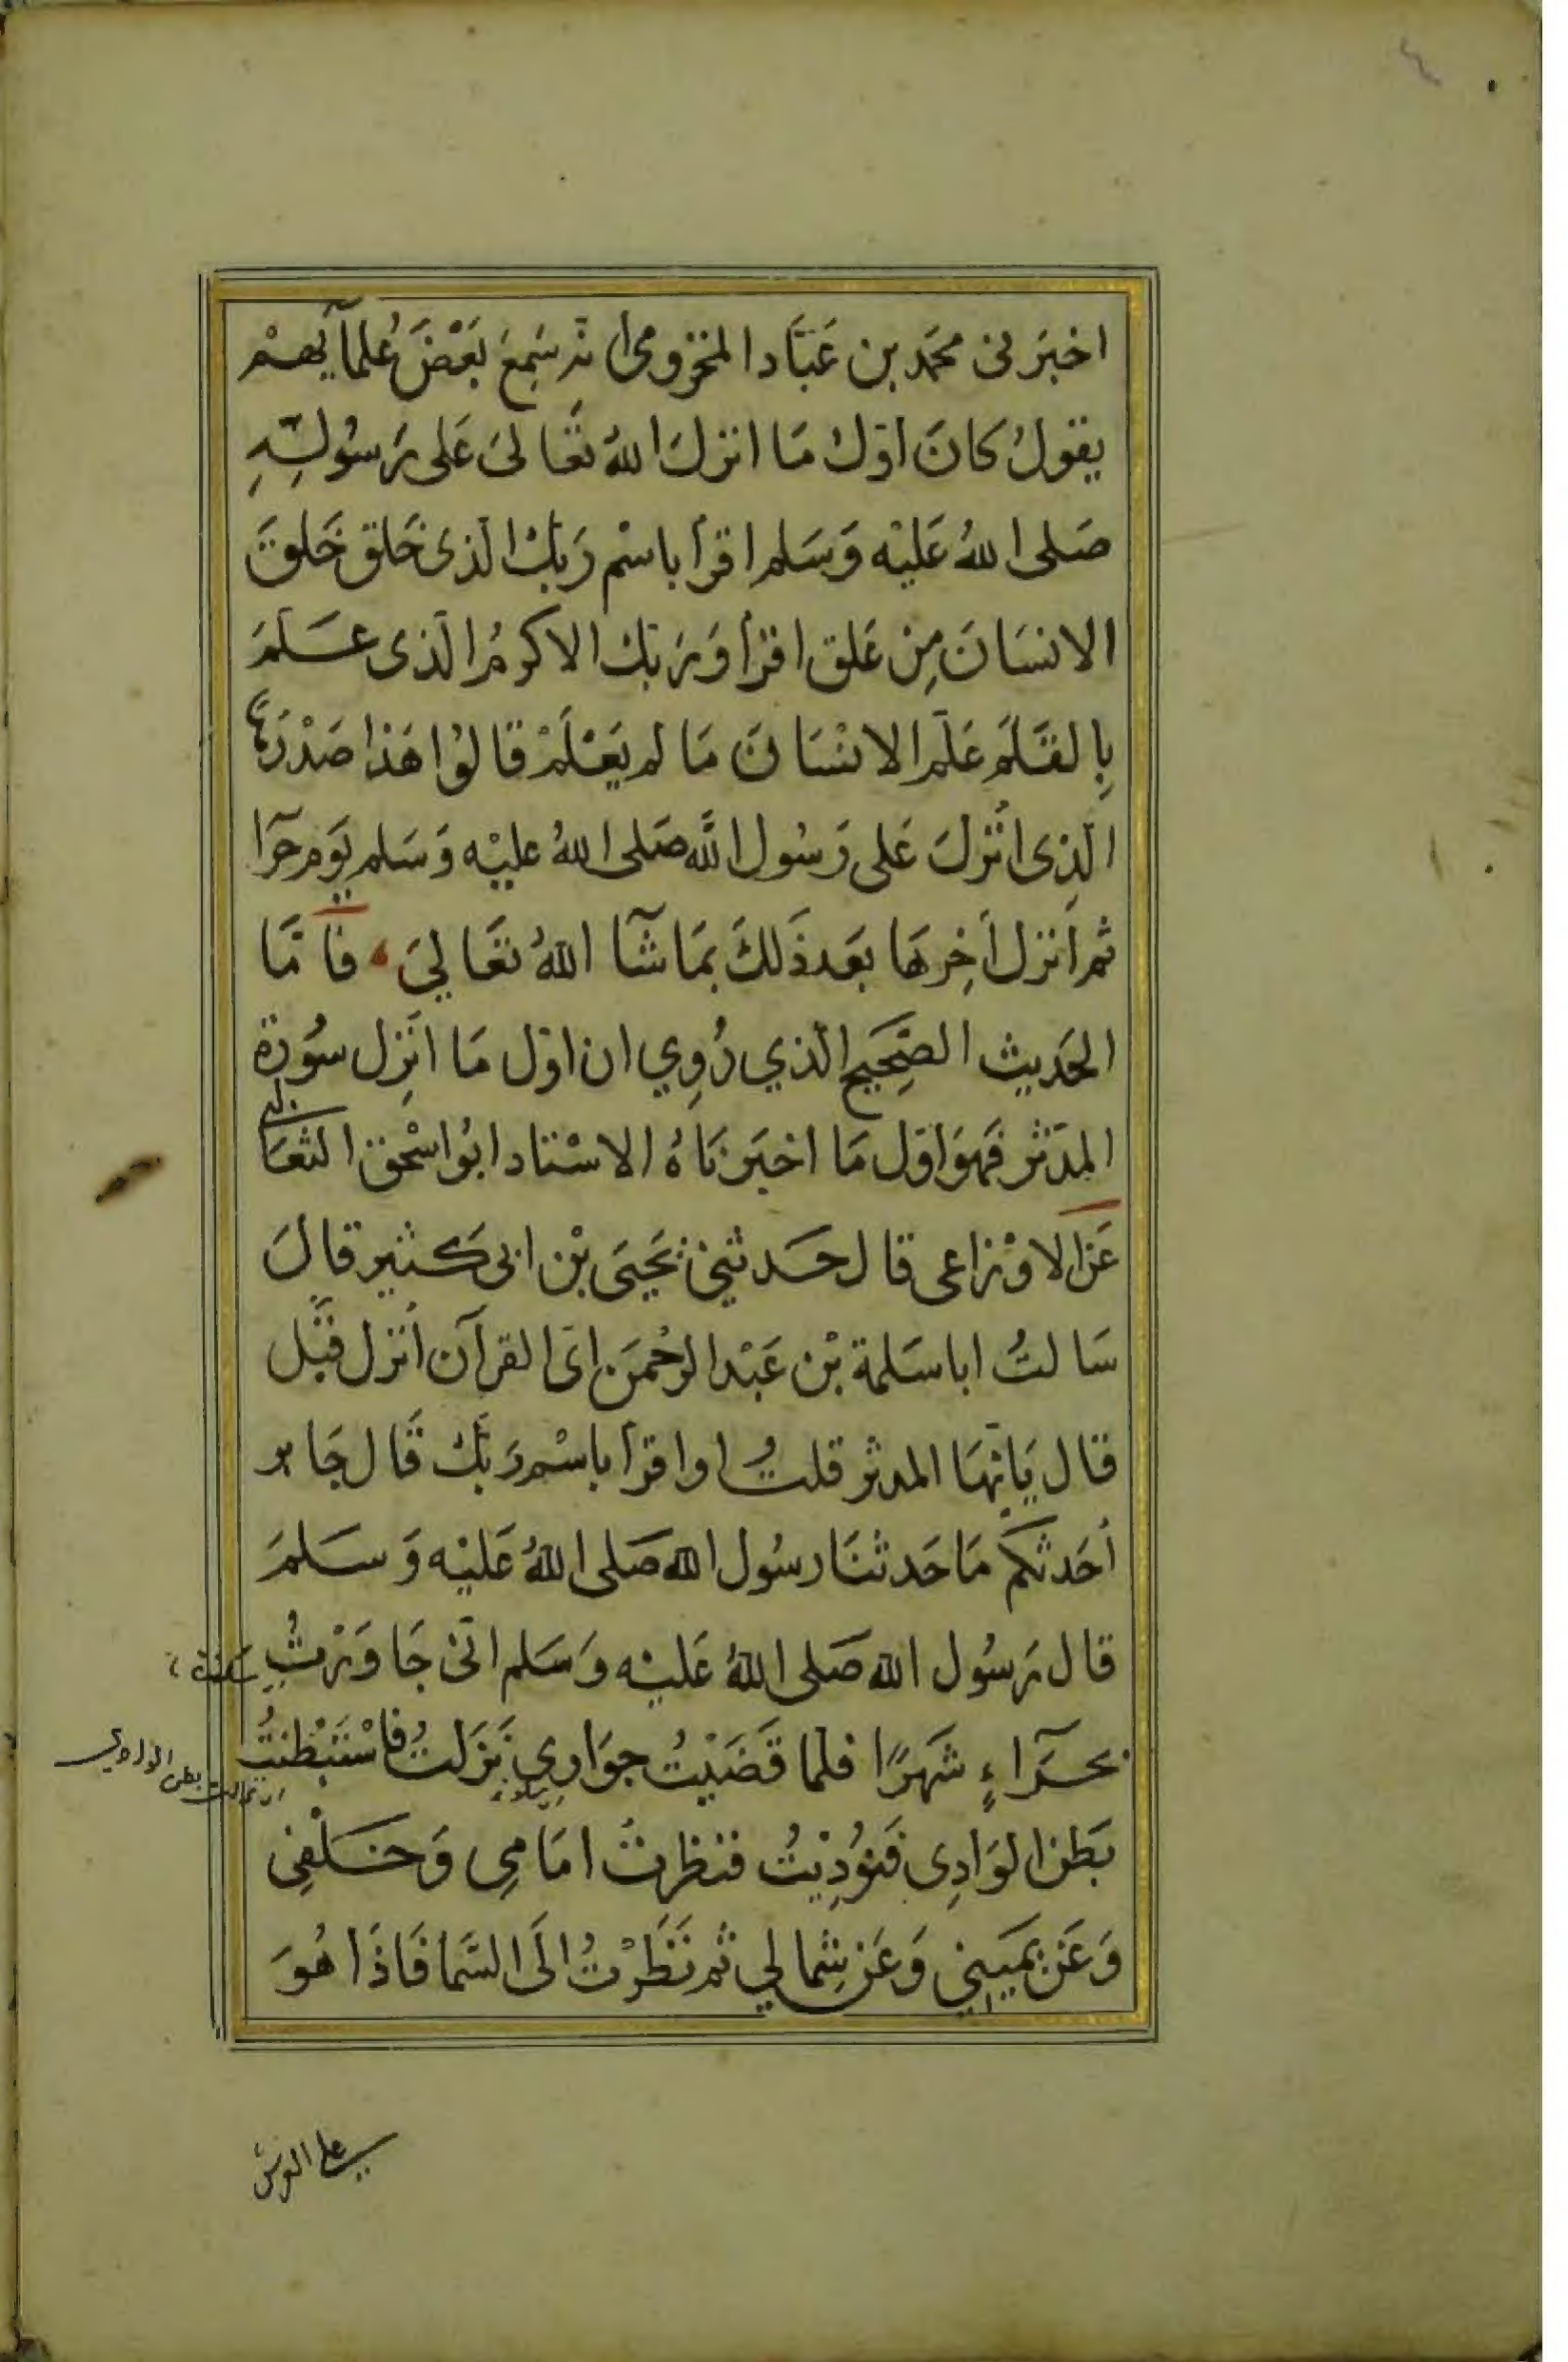 ٤
اخبَرنى محمَد بن عَبَّاد المخزومى انّه سَمِعَ بَعْضَ عُلمآيهمْ
يقولُ كانَ اوّل مَا انزلَ اللهُ تعَالىَ عَلى رَسُولِهِ
صَلى اللهُ عَليْه وَسَلم اقرأ باسْم رَبكْ الذى خَلق خَلقَ
الانسَانَ مِن عَلق اقرأ وَرَبك الاكرمُ الّذى عَلمَ
بِالقَلمَ عَلّم الانسَانَ مَا لم يَعْلَمْ قالوُا هَذا صَدْرُهَا
الّذِى اُنْزلَ عَلى رَسُول اللّه صَلى اللهُ عليْه وَسَلم يَوم حرَآ
ثم اَنزل اَخِرهَا بَعَد ذَلكَ بمَا شَآ اللهُ تعَاليَ ، فَآمّا
الحَديث الصَّحِيَح الّذي رُوِي ان اوّل مَا انَزِل سُورَة
المِدّثر فَهوَ اوّل مَا اخبَرنَاهُ الاسْتاد ابوُ اسْحٰق الثعَالبى
عَن الاوْزاعى قال حَدثنيْ يَحَيىَ بْن ابى كَثير قالَ
سَالتُ ابا سَلمة بْن عَبْد الرحْمَن اىّ القرآن اُنزل قَبْل
قال يَايّهَا المدثر قلتُ او اقرأ باسْم رَبكْ قَال جَابر
اُحَدثكم مَا حَدثنَا رسُول الله صَلى اللهُ عَليْه وَسَلمَ
قال رَسُول الله صَلى اللهُ عَليْه وَسَلم انّى جَاوَرْتُ
بحَرآءٍ شَهرًا فلما قَضَيْتُ جوَارِي نَزَلتُ فاسْتَبْطنتُ
بَطن الوَادِى فَنوُدِيْتُ فنظرتُ امَامِى وَخَلْفِى
وَعَن يَميَنِي وَعَن شِمالي ثم نَظَرْتُ الَى السَّما فَاذَا هُوَ
على العرش